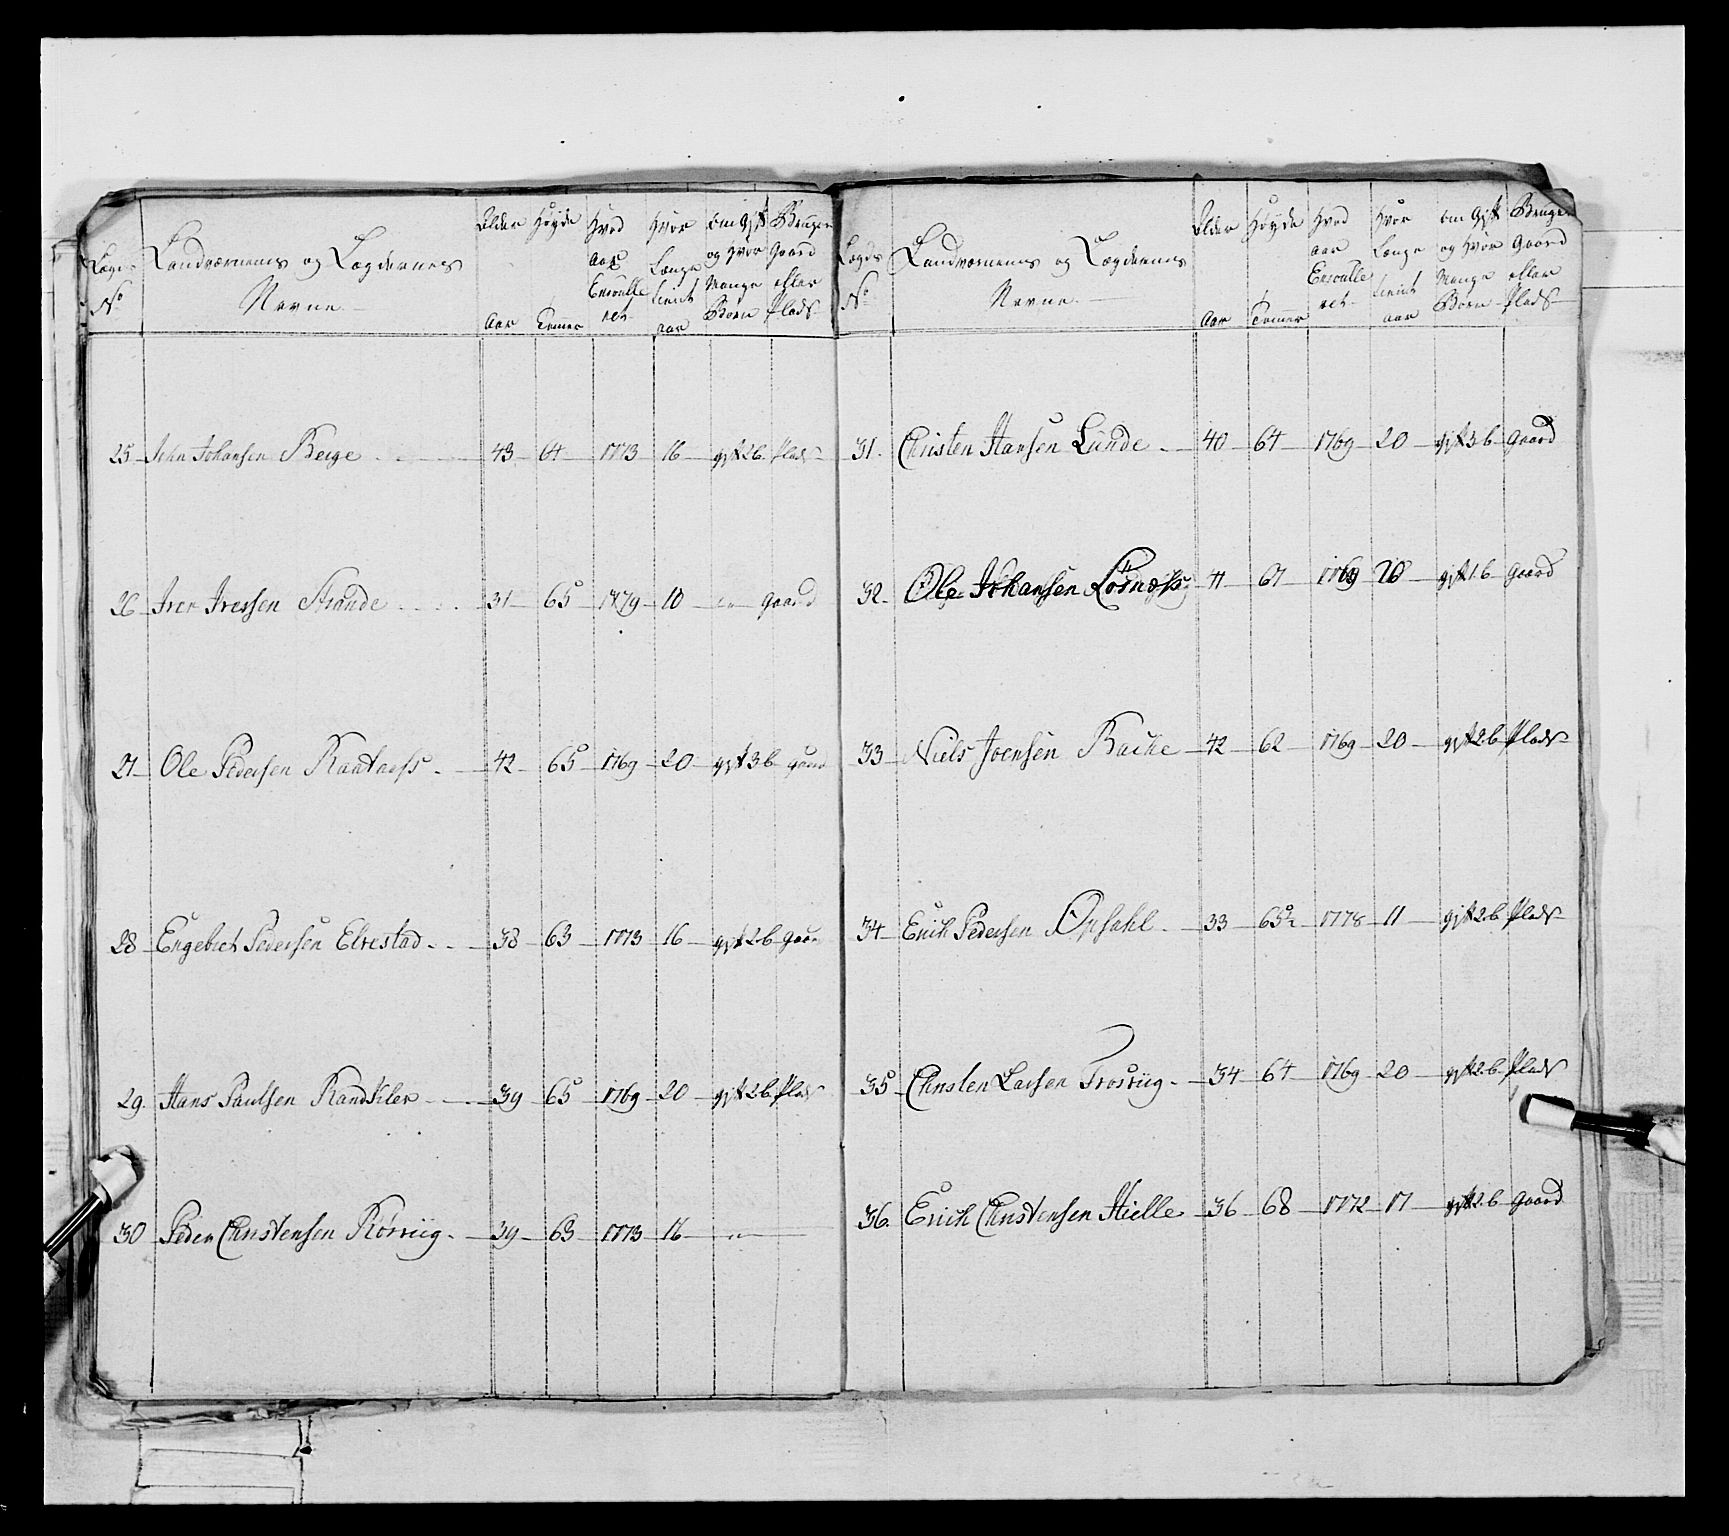 Lægds No
Landværnernes og Lægdernes Nevne
Alder Aar
Høyde Tomer
Hvad Aar Enroulleret
Hvor Længe tient aar
om Gift og Hvor Mange Børn
Bruger Gaard eller Plads
25 John Johansen Berge 43 64 1773 16 gift 2 b Plads
26 Iver Iversen Strande 31 65 1779 10 Gaard
27 Ole Pedersen 42 65 1769 20 gift 3 b gaard
28 Engebret Pedersen Elvestad 38 63 1773 16 gift 2 b gaar
29 Hans Paulsen Randkler 39 65 1769 20 gift 2 b Plads
30 Peder Christensen Rørviig 39 63 1773 16
Lægds No
Landværnernes og Lægdernes Nevne
Alder Aar
Høyde Tomer
Hvad aar Enroulleret
Hvor Længe tient aar
om Gift og Hvor Mange Børn
Bruger Gaard eller Plads
31 Christen Hansen Lunde 40 64 1769 20 gift 3 b Gaard
32 Ole Johansen 41 67 1769 20 gift 1 b Gaard
33 Niels Joensen Bache 42 62 1769 20 gift 2 b Plads
34 Erich Pedersen Opsahl 33 65½ 1778 11 gift 2 b Plads
35 Christen Larsen Trosviig 34 64 1769 20 gift 2 b Plads
36 Erich Christensen Hielle 36 68 1772 17 gift 2 b Gaard